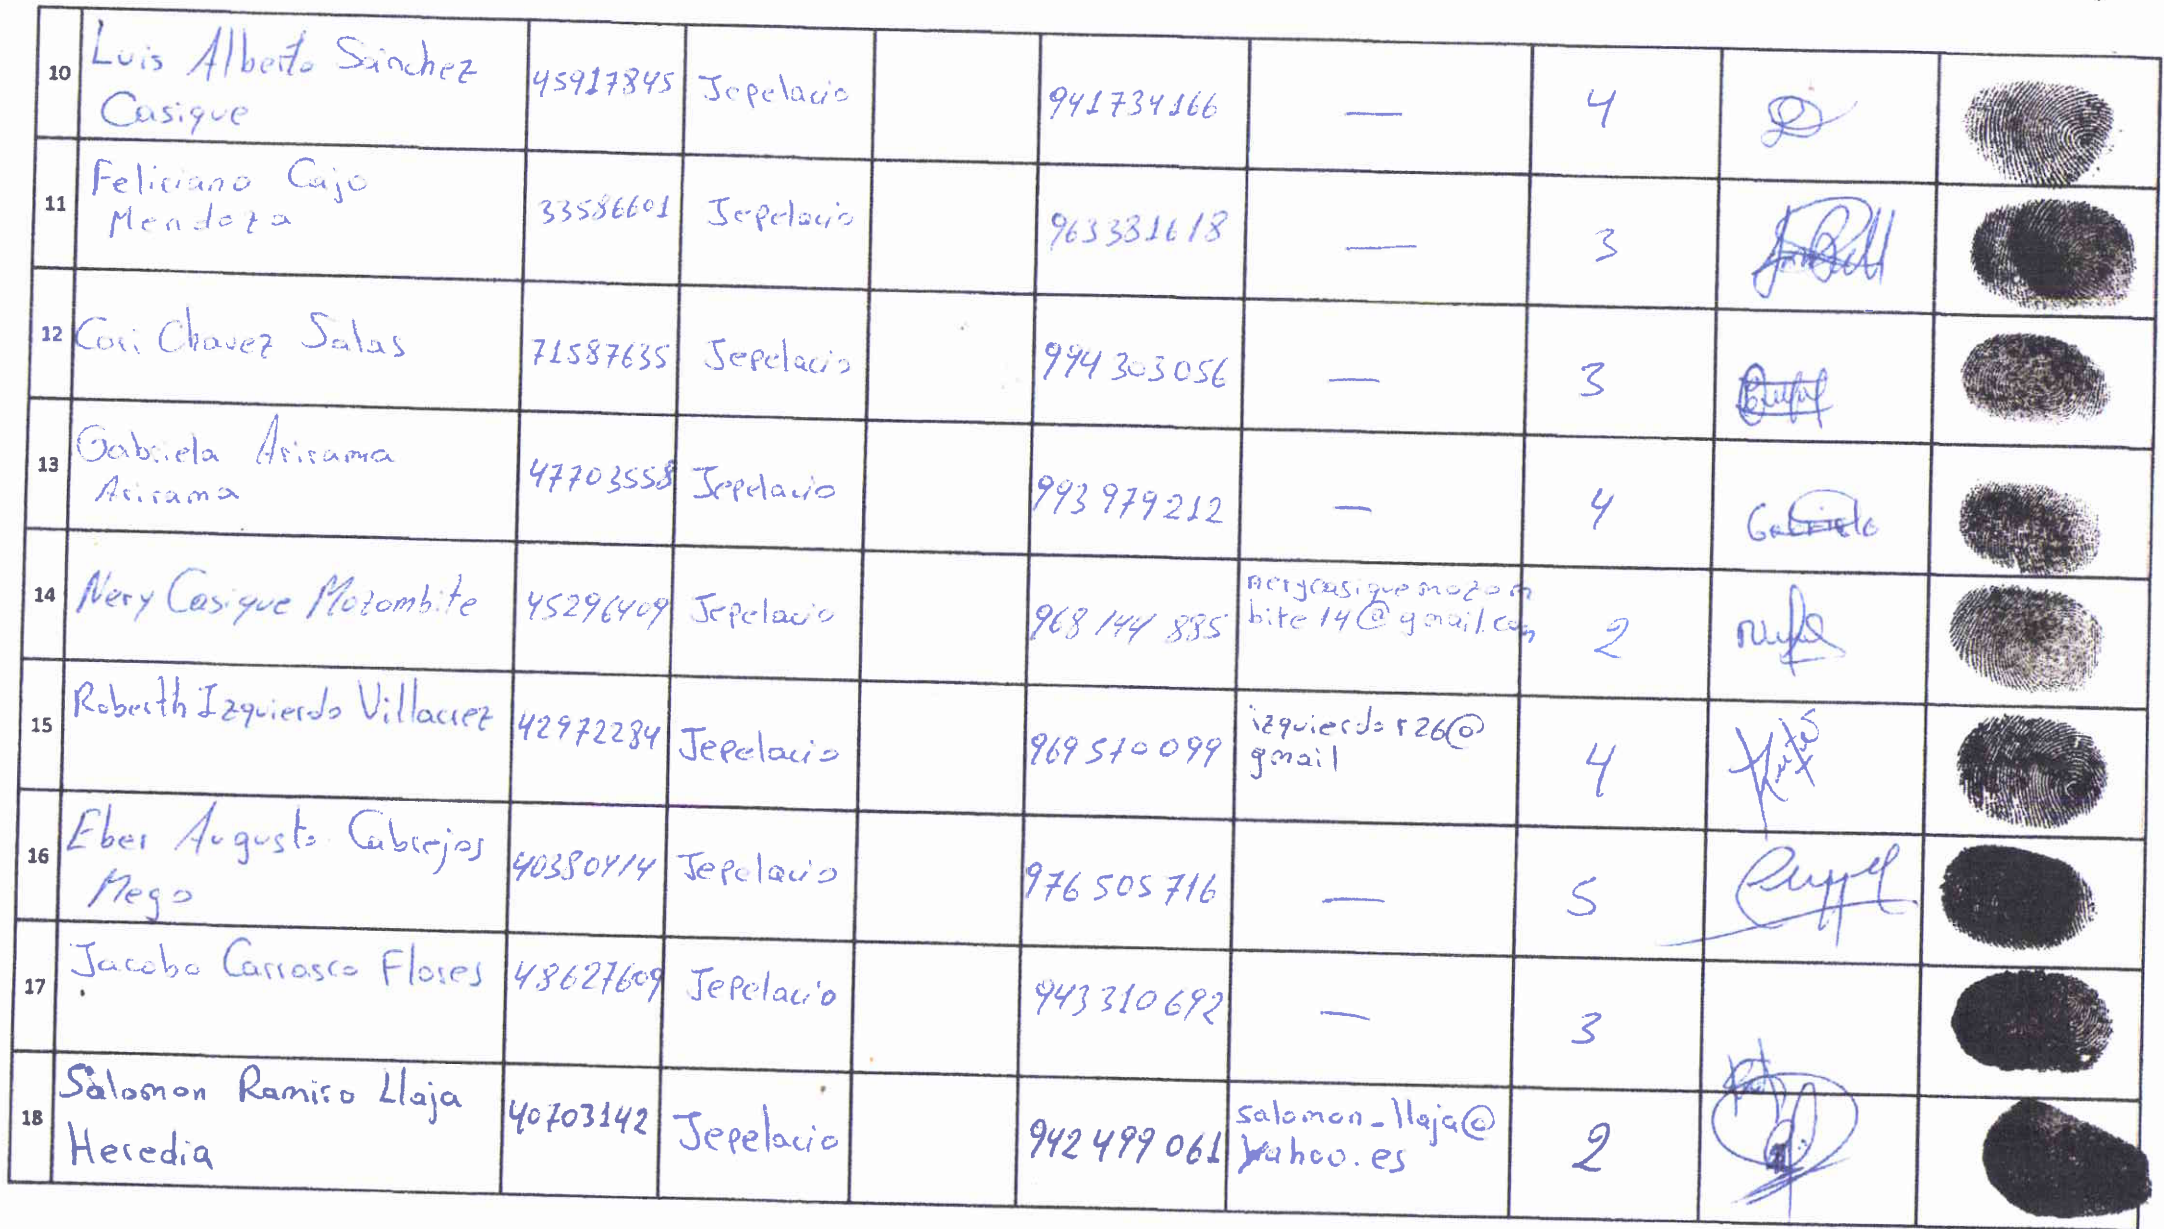 10 Luis Alberto Sánchez Casique 45917845 Jepelacio 941734166 — 4
11 Feliciano Cajo Mendoza 33586601 Jepelacio 963381618 — 3
12 Cori Chavez Salas 71587635 Jepelacio 994 303 056 — 3
13 Gabriela Arirama Arirama 47703558 Jepelacio 993 979 212 — 4 Gabriela
14 Nery Casique Mozombite 45296409 Jepelacio 968 144 885 nerycasiquemozombite14@gmail.com 2
15 Roberth Izquierdo Villacrez 42972284 Jepelacio 969 570 099 izquierdor26@gmail 4
16 Eber Augusto Cabrejos Mego 40380414 Jepelacio 976 505 716 — 5
17 Jacobo Carrasco Flores 48627609 Jepelacio 943 310 692 — 3
18 Salomon Ramiro Llaja Heredia 40703142 Jepelacio 942 499 061 salomon_llaja@yahoo.es 2